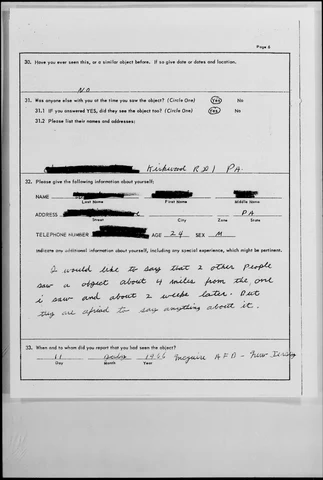 Page 6
30. Have you ever seen this, or a similar object before. If so give date or dates and location.
NO
31. Was anyone else with you at the time you saw the object? (Circle One) Yes No
31.1 IF you answered YES, did they see the object too? (Circle One) Yes No
31.2 Please list their names and addresses:
Kirkwood RD1 PA
32. Please give the following information about yourself:
NAME
Last Name First Name Middle Name
ADDRESS PA
Street City Zone State
TELEPHONE NUMBER AGE 24 SEX M
Indicate any additional information about yourself, including any special experience, which might be pertinent.
I would like to say that 2 other people
saw a object about 4 miles from the one
i saw and about 2 weeks later. But
they are afriad to say anything about it.
33. When and to whom did you report that you had seen the object?
11 1966 Mcguire AFB - New Jersey
Day Month Year